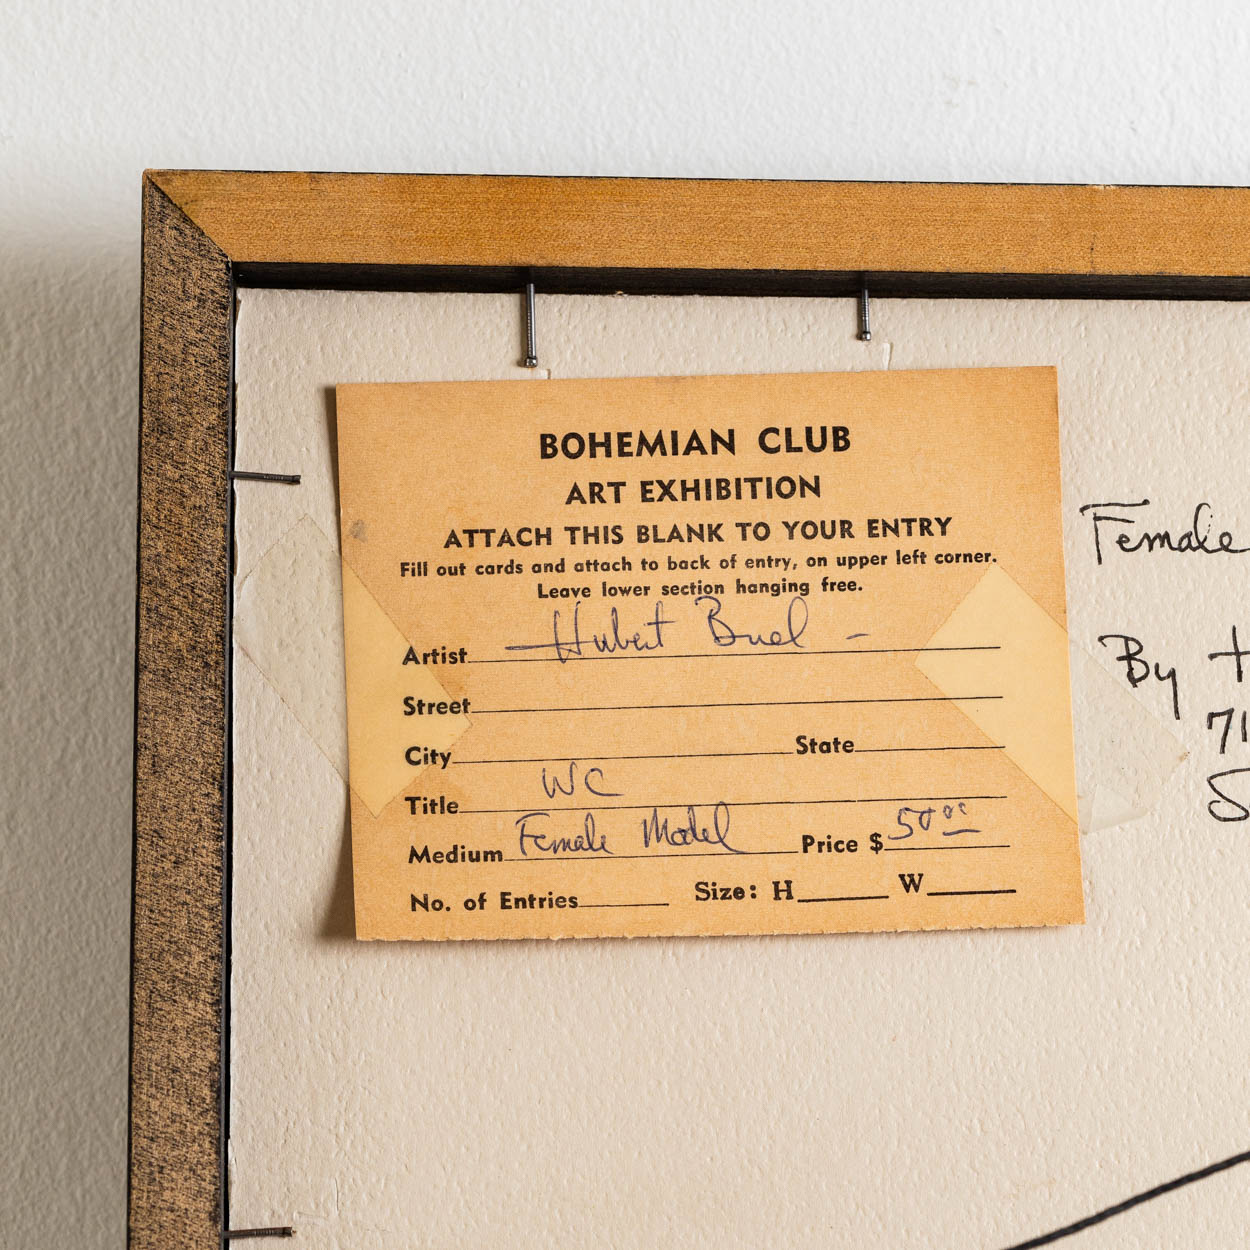 BOHEMIAN CLUB
ART EXHIBITION
ATTACH THIS BLANK TO YOUR ENTRY
Fill out cards and attach to back of entry, on upper left corner.
Leave lower section hanging free.
Artist Hubert Buel
Street
City State
Title WC
Medium Female Model Price $ 50 00
No. of Entries Size: H W
Female
By H
71
S